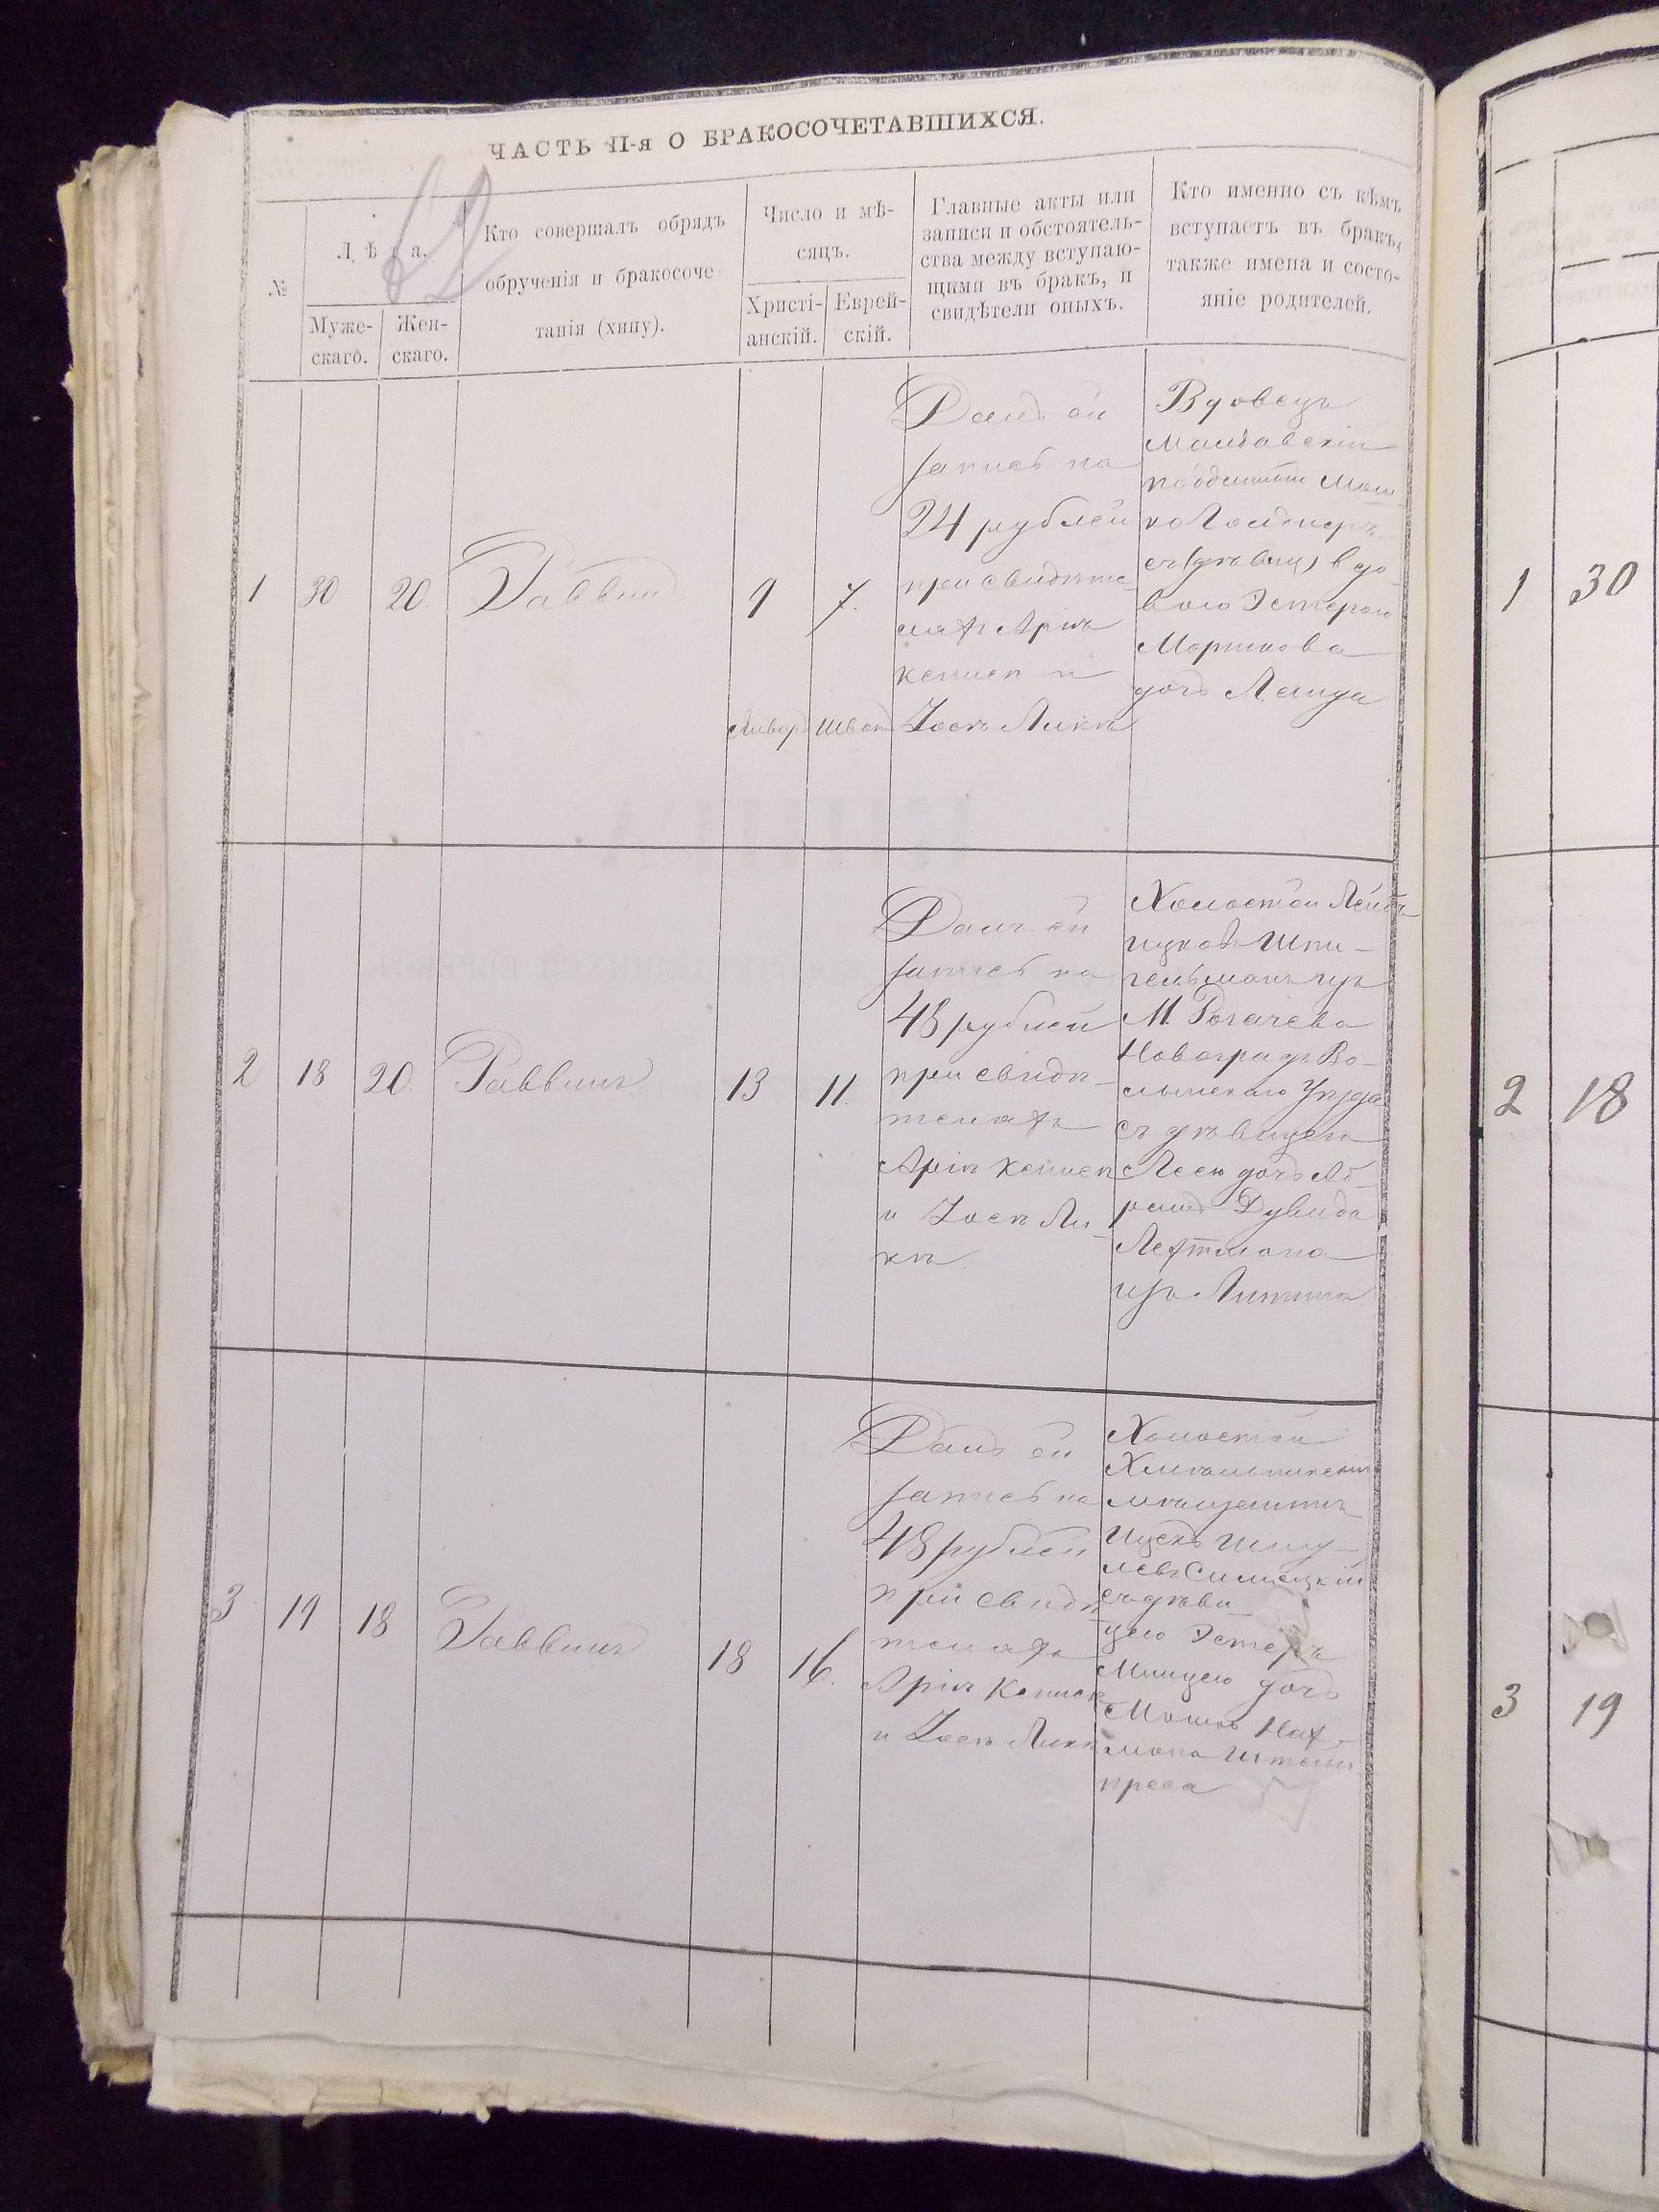 ЧАСТЬ II-я О БРАКОСОЧЕТАВШИХСЯ.
№
Лѣта.
Муже-
скаго.
Жен-
скаго.
Кто совершалъ обрядъ
обрученія и бракосоче-
танія (хипу).
Число и мѣ-
сяцъ.
Христі-
анскій.
Еврей-
скій.
Главные акты или
записи и обстоятель-
ства между вступаю-
щими въ бракъ, и
свидѣтели оныхъ.
Кто именно съ кѣмъ
вступаетъ въ бракъ,
также имена и состо-
яніе родителей.
1
30
20.
Раввинъ
9
Январ
7.
Шват
Далъ ей
запись на
24 рублей
при свидѣте
ляхъ Арiи
Кеписъ и
Іосъ Ликъ
Вдовецъ
Молдавскій
подданный Мош
ко
съ (дѣвиц) вдо-
вою Эстерою
дочь
2
18
20.
Раввинъ
13
11.
Далъ ей
запись на
48 рублей
при свидѣ-
теляхъ
и
Холостой Лейбъ
Ицковъ Шпи-
гельманъ изъ
М. Рогачева
Новоградъ Во-
лынскаго Уѣзда
съ дѣвицею
Леею дочь Аб-
рамъ Дувида
Лехтмана
изъ Литина
3
19
18
Раввинъ
18
16.
Далъ ей
запись на
48 рублей
при свидѣ
теляхъ
и
Холостой
Хмѣльникскій
мѣщанинъ
Ицекъ Шму-
левъ
съ дѣви-
цею Эстеръ
дочь
Мошко Нах-
мана Штейн
преса
1
30
2
18
3
19